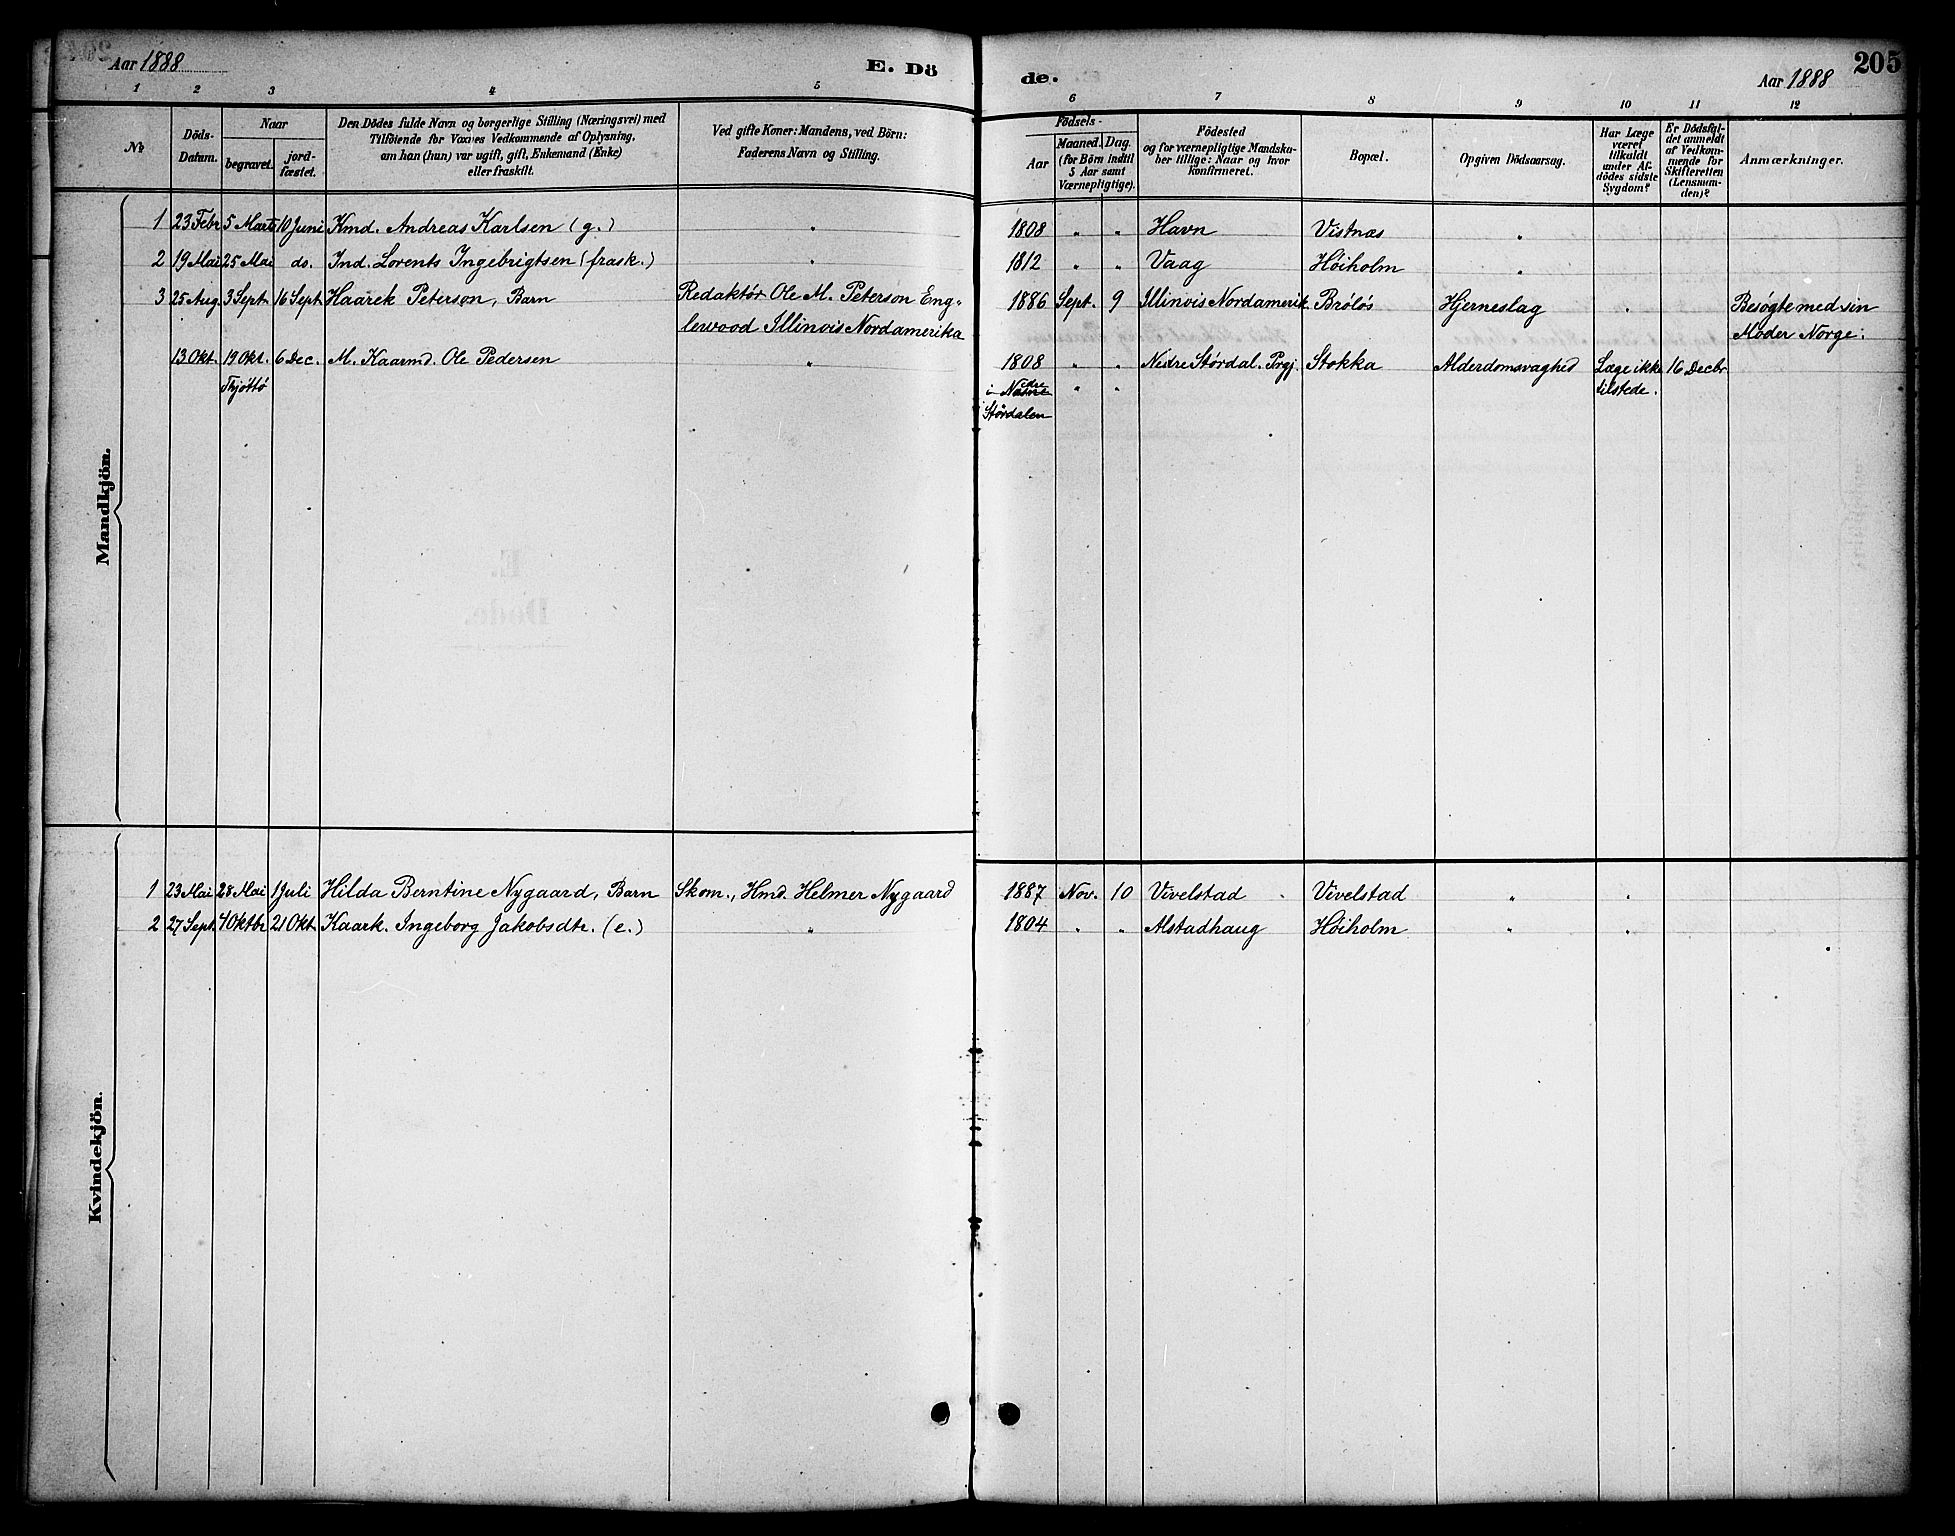 Aar 1888
E. Dö
de.
Aar 1888
205
1 2 3 4 5 6 7 8 9 10 11 12
№
Döds-
Datum.
Naar
begravet.
jord-
fæstet.
Den Dödes fulde Navn og borgerlige Stilling (Næringsvei) med
Tilföiende for Voxnes Vedkommende af Oplysning,
om han (hun) var ugift, gift, Enkemand (Enke)
eller fraskilt.
Ved gifte Koner: Mandens, ved Börn:
Faderens Navn og Stilling.
Födsels-
Aar
Maaned. Dag.
(for Börn indtil
5 Aar samt
Værnepligtige).
Födested
og for værnepligtige Mandska-
ber tillige: Naar og hvor
konfirmeret.
Bopæl.
Opgiven Dödsaarsag.
Har Læge
været
tilkaldt
under Af-
dödes sidste
Sygdom?
Er Dödsfal-
det anmeldt
af Vedkom-
mende for
Skifteretten
(Lensman-
den)?
Anmærkninger.
Mandkjön.
1 23 Febr 5 Marts 10 Juni Kmd. Andreas Karlsen (g.) " 1808 " " Havn Vistnæs "
2 19 Mai 25 Mai do. Ind. Lorents Ingebrigtsen (frask.) " 1812 " " Vaag Høiholm "
3 25 Aug. 3 Sept 16 Sept Haarek Peterson, Barn Redaktør Ole M. Peterson Eng- 1886 Sept. 9 Illinois Nordamerik. Brøløs Hjerneslag " Besøgte med sin
lewood Illinois Nordamerika Moder Norge.
13 Okt. 19 Okt. 6 Dec. M. Kaarmd. Ole Pedersen " 1808 " " Nedre Stördal. Prgj. Stokka Alderdomsvaghed Læge ikke 16 Decbr
Thjøttø i Nedre " " tilstede.
Stördalen
Kvindekjön.
1 23 Mai 28 Mai 1 Juli Hilda Berntine Nygaard, Barn Skom., Hmd. Helmer Nygaard 1887 Nov. 10 Vivelstad Vivelstad " "
2 27 Sept. 4 Oktbr 21 Okt. Kaark. Ingeborg Jakobsdtr. (e.) " 1804 " " Alstadhaug Høiholm " "
E.
Døde.